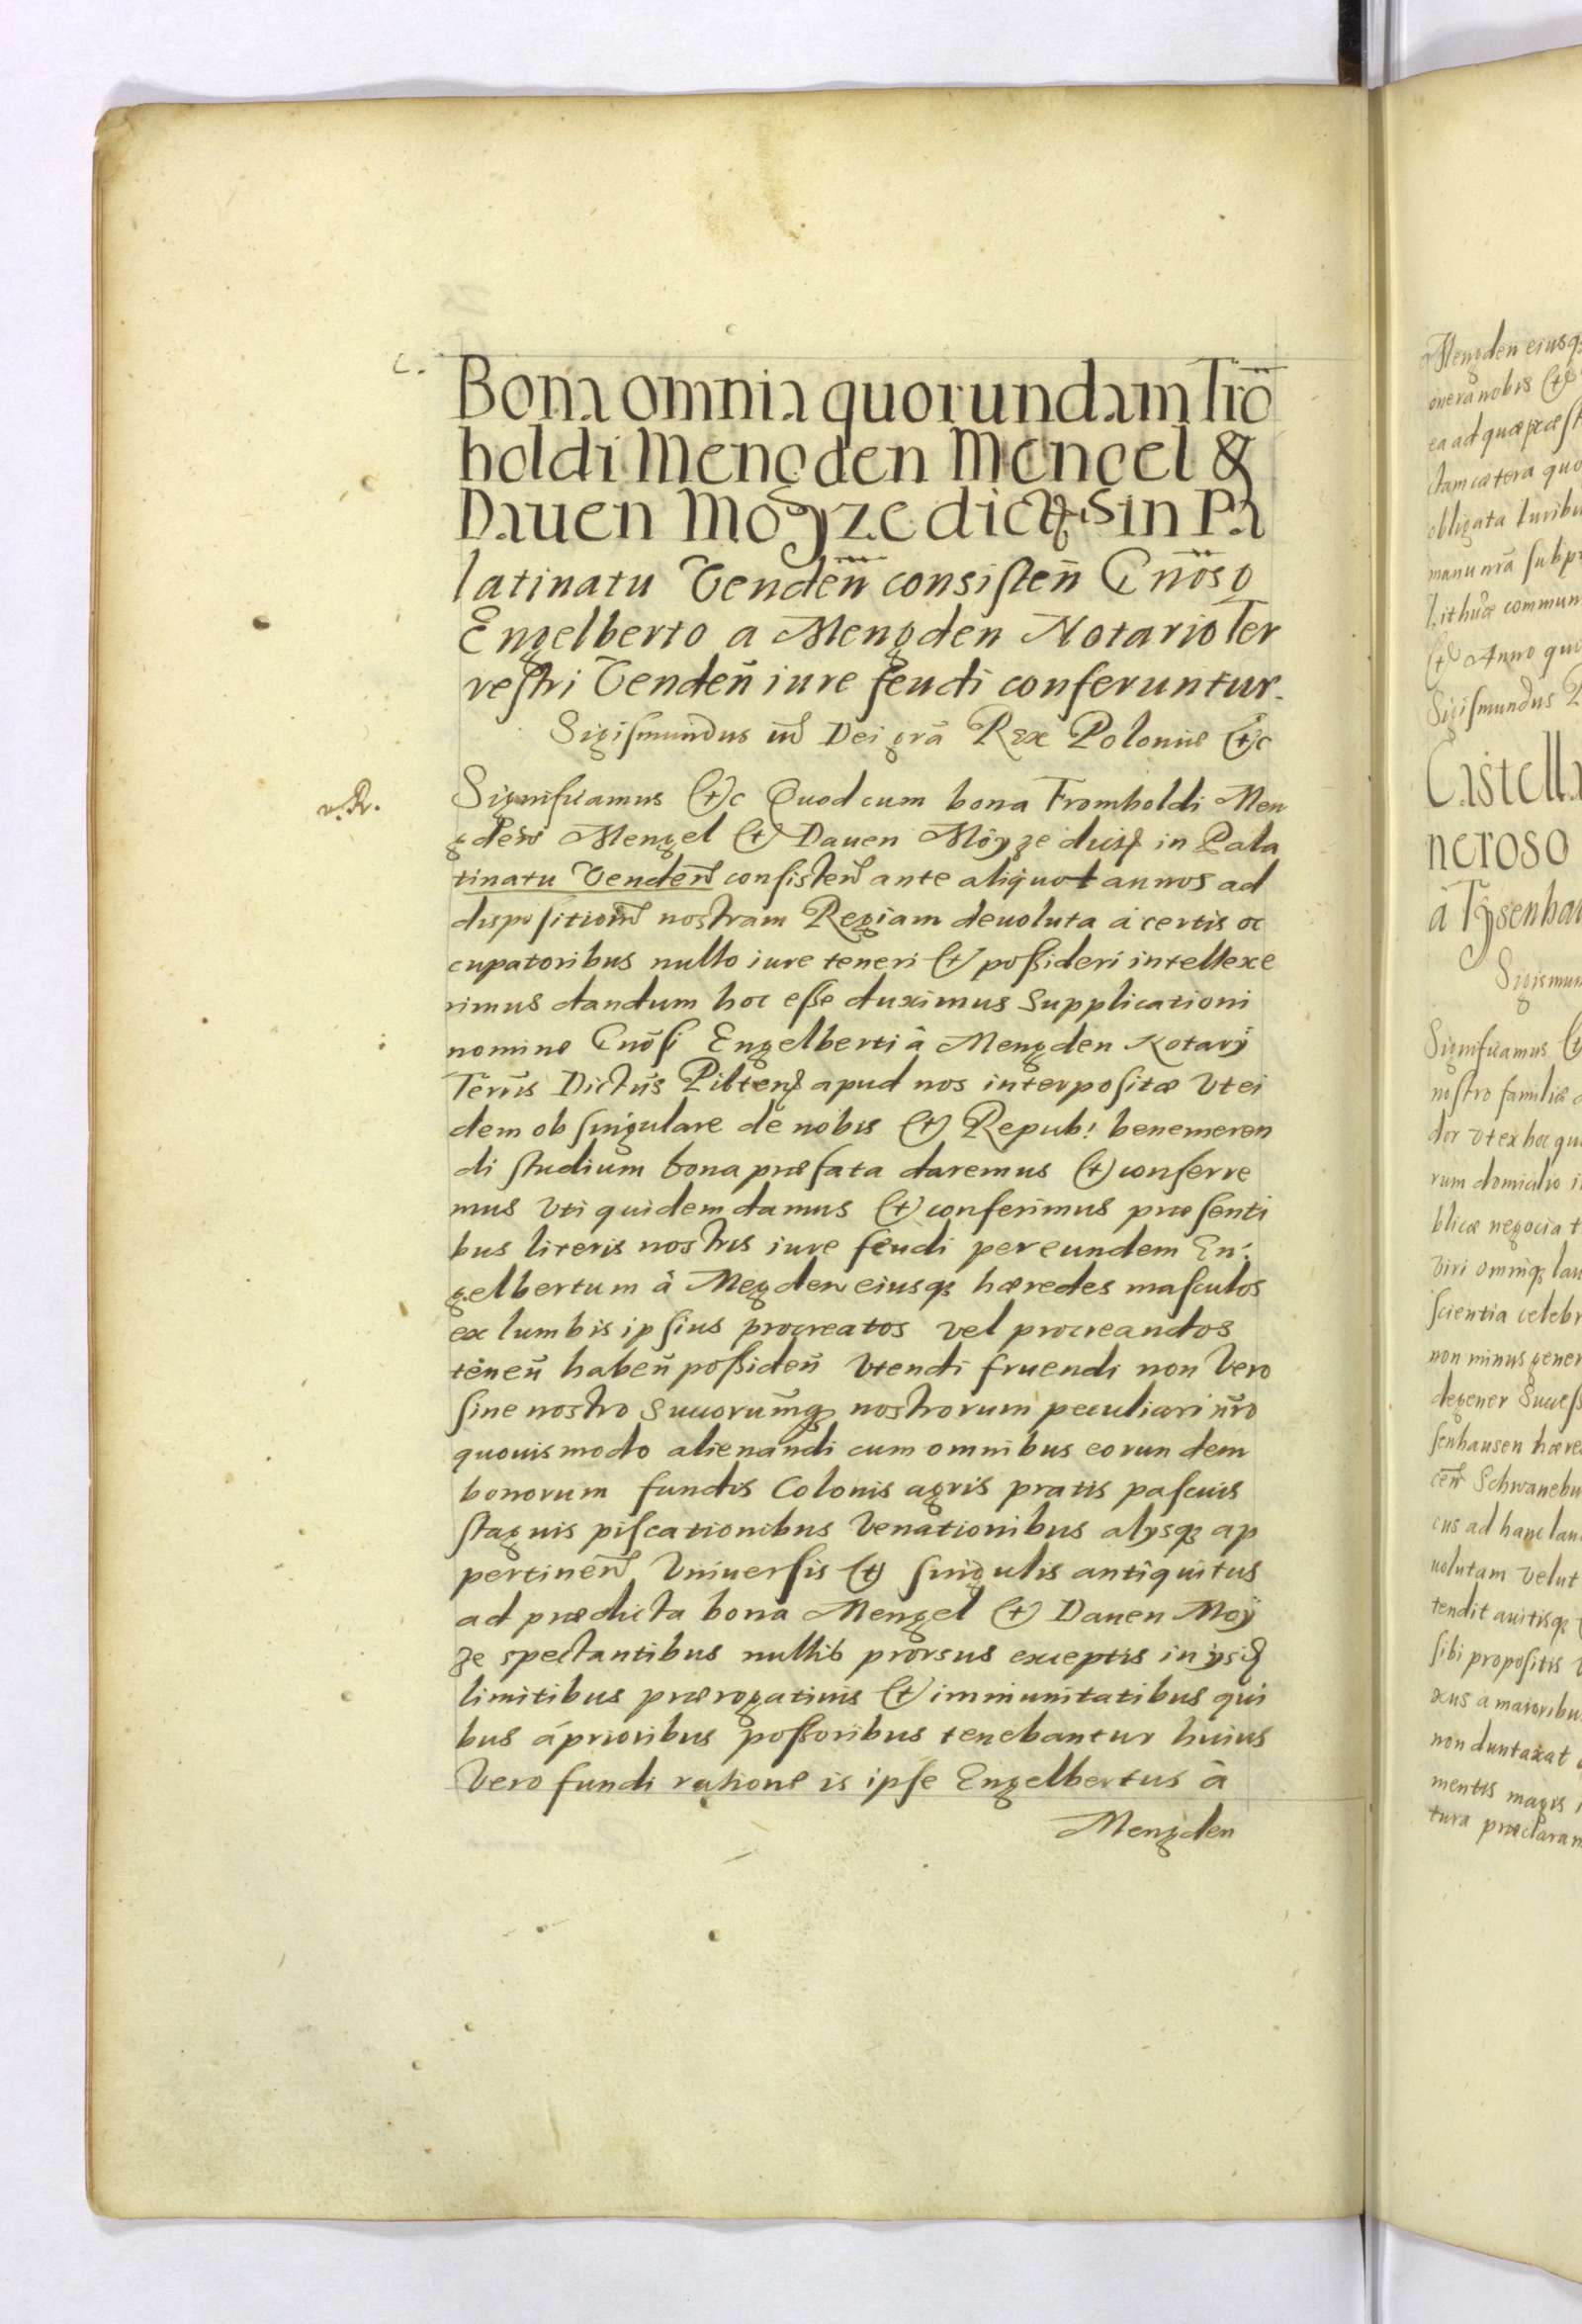 C.
Bona omnia quorundam Frō
holdi Mengden Mengel &
Dauen Moÿze dictis in Pa
latinatu Vendeñ consisteñ Gnoso
Engelberto a Mengden Notario Ter
restri Vendeñ iure feudi conferuntur.
Sigismundus iiĩ Dei grã Rex Poloniæ etc
Significamus etc Quod cum bona Fromholdi Men
gden Mengel et Dauen Möyze dictis in Pala
tinatu Vendeñ consisteñ ante aliquot annos ad
dispositioñ nostram Regiam deuoluta à certis oc
cupatoribus nullo iure teneri et possideri intellexe
rimus dandum hoc esse duximus Supplicationi
nomine Gnosi Engelberti â Mengden Notarÿ
Terris Dictus Pilteñ apud nos interpositæ Vt ei
dem ob singulare de nobis et Repub: benemeren
di studium bona præfata daremus et conferre
mus Vti quidem damus et conferimus præsenti
bus literis nostris iure feudi per eundem En:
gelbertum â Megden eiusq hæredes masculos
ex lumbis ipsius procreatos vel procreandos
teneñ habeñ possideñ Vtendi fruendi non Vero
sine nostro Succorumq nostrorum peculiari nro
quouismodo alienandi cum omnibus eorundem
bonorum fundis Colonis agris pratis pascuis
stagnis piscationibus Venationibus alysq ap
pertineñ Vniuersis et singulis antiquitus
ad prædicta bona Mengel et Dauen Moÿ
ze spectantibus nullis prorsus exceptis in ijsdem
limitibus prærogatiuis et immunitatibus qui
bus á prioribus possoribus tenebantur huius
Vero fundi ratione is ipse Engelbertus â
Mengden
Mengden eiusq
onera nobis et
ea ad quæ præst
ctam cætera quo
obligata Iuribu
manu nrã subpr
Lithuæ commun
et Anno quo
Sigismundus R
Castella
neroso
â Tÿsenhau
Sigismun
Significamus et
nostro familiæ
dor Vt ex hoc qu
rum domicilio i
blicæ negocia t
Viri omniq lau
scientia celebr
non minus gener
degener Success
senhausen hære
ceñ Schwanebu
ius ad hanc lau
uolutam velut
tendit auitisq
sibi propositis
xus a maioribu
non duntaxat
mentis magis i
tura præclaram